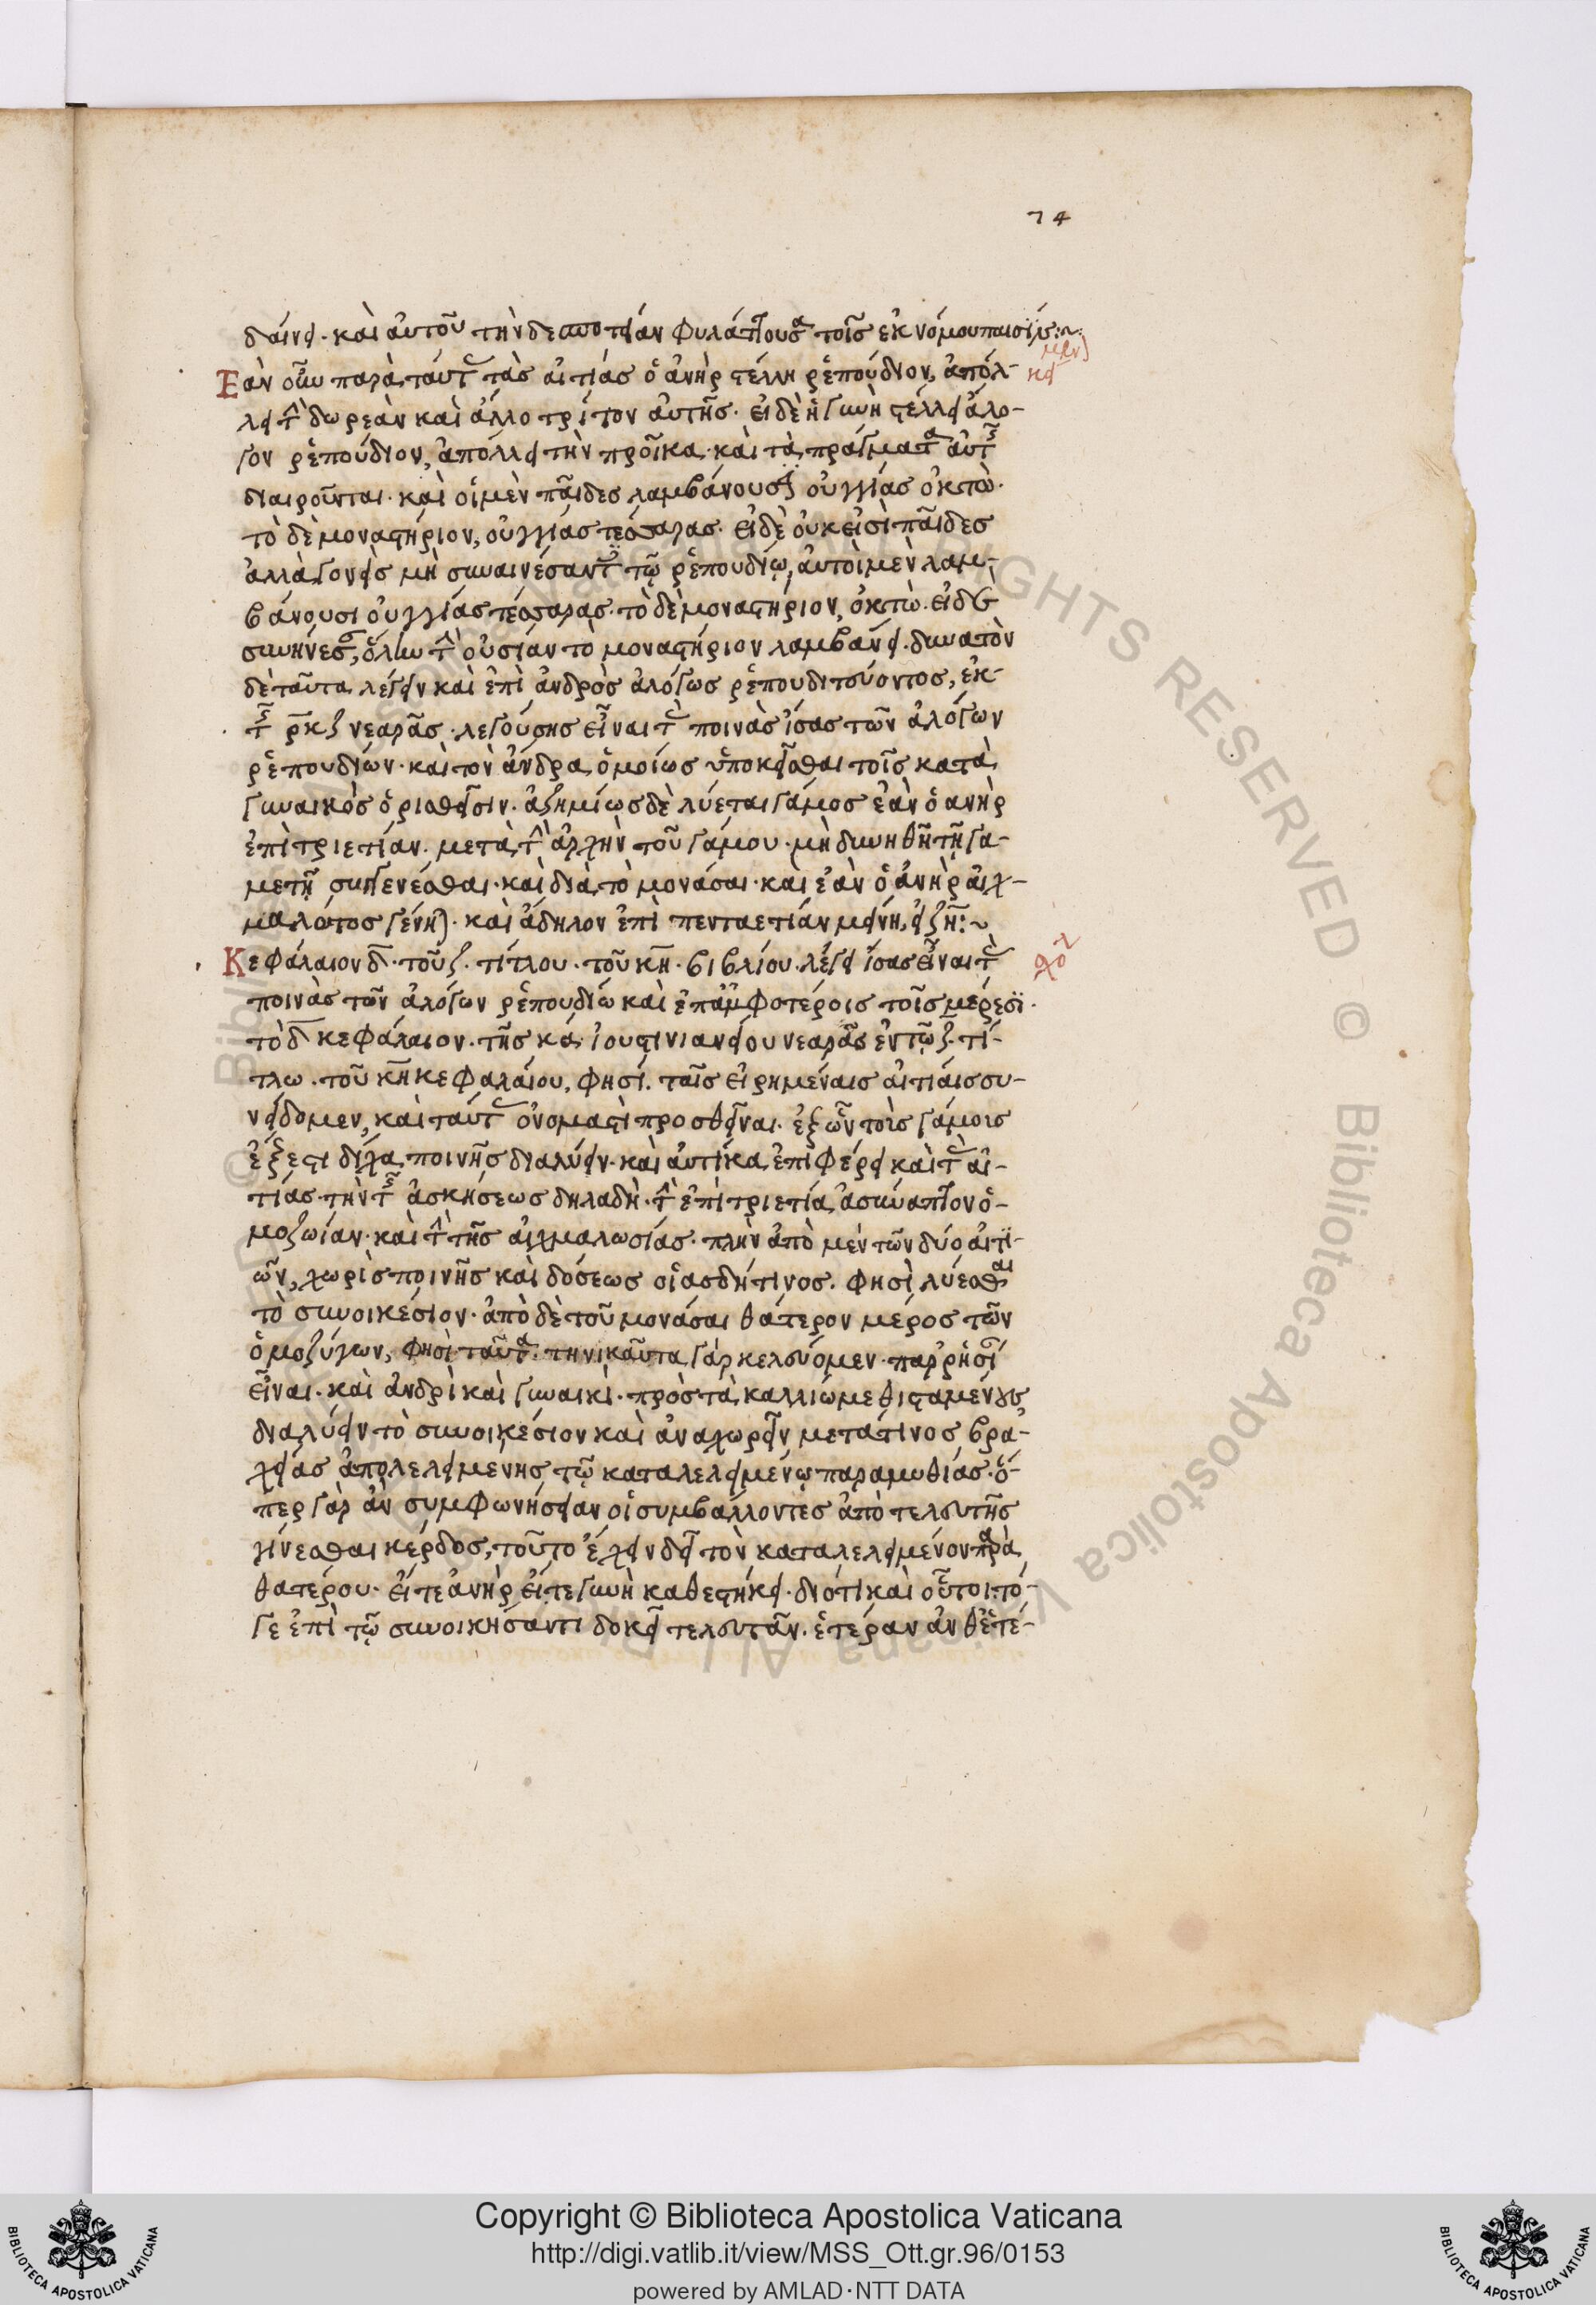 74
δαίνει· καὶ αὐτοῦ τὴν δεσποτείαν φυλάττουσα τοῖς ἐκ νόμου παισίν:~
Ἐὰν οὖν παρὰ ταύτας τὰς αἰτίας ὁ ἀνὴρ στέλλη ῥεπούδιον, ἀπόλ-
λει τὴν δωρεὰν καὶ ἄλλο τρίτον αὐτῆς· εἰ δὲ ἡ γυνὴ στέλλει ἄλο-
γον ῥεπούδιον, ἀπόλλει τὴν προῖκα· καὶ τὰ πράγματα αὐτῆς
διαιροῦνται· καὶ οἱ μὲν παῖδες λαμβάνουσιν οὐγγίας ὀκτώ·
τὸ δὲ μοναστήριον, οὐγγίας τέσσαρας· εἰ δὲ οὐκ εἰσὶ παῖδες
ἀλλὰ γονεῖς μὴ συναινέσαντες τῷ ῥεπουδίῳ, αὐτοὶ μὲν λαμ-
βάνουσι οὐγγίας τέσσαρας· τὸ δὲ μοναστήριον, ὀκτώ· εἰ δὲ
συνήνεσαν, ὅλην τὴν οὐσίαν τὸ μοναστήριον λαμβάνει· δυνατὸν
δὲ ταῦτα λέγειν καὶ ἐπὶ ἀνδρὸς ἀλόγως ῥεπουδιτεύοντος, ἐκ
τῆς ρκζ νεαρᾶς· λεγούσης εἶναι τὰς ποινὰς ἴσας τῶν ἀλόγων
ῥεπουδίων· καὶ τὸν ἄνδρα ὁμοίως ὑποκεῖσθαι τοῖς κατὰ
γυναικὸς ὁρισθεῖσιν· ἀζημίως δὲ λύεται γάμος ἐὰν ὁ ανὴρ
ἐπὶ τριετίαν· μετὰ τὴν ἀρχὴν τοῦ γάμου· μὴ δυνηθῆ τῆ γα-
μετῆ συγγενέσθαι· καὶ διὰ τὸ μονάσαι· καὶ ἐὰν ὁ ἀνὴρ αἰχ-
μαλωτος γένηται· καὶ ἄδηλον ἐπὶ πενταετίαν μείνη, εἰ ζῆ:~
Κεφάλαιον δ· τοῦ ζ· τίτλου· τοῦ κη· βιβλίου· λέγει ἴσας εἶναι τὰς
ποινὰς τῶν ἀλόγων ῥεπουδίω καὶ ἐπ' ἀμφοτέροις τοῖς μέρεσι·
τὸ δ κεφάλαιον· τῆς κα ἰουστινιανείου νεαρᾶς ἐν τῷ ζ· τί-
τλω· τοῦ κη κεφαλαίου, φησί· ταῖς εἰρημέναις αἰτίαις συ-
νείδομεν, καὶ ταύτας ὀνομαστὶ προσθεῖναι· ἐξ ὧν τοῖς γάμοις
ἔξεστι δίχα ποινῆς διαλύειν· καὶ αὐτίκα ἐπιφέρει καὶ τὰς αἰ-
τίας· τὴν τῆς ἀσκήσεως δηλαδὴ· τὴν ἐπὶ τριετία ἀσυναπτον ὁ-
μοζωίαν· καὶ τὴν τῆς αἰχμαλωσίας· πλὴν ἀπὸ μὲν τῶν δύο αἰτι-
ῶν, χωρὶς ποινῆς καὶ δόσεως οἱασδήτινος· φησὶ λύεσθαι
τὸ συνοικέσιον· ἀπὸ δὲ τοῦ μονάσαι θάτερον μέρος τῶν
ὁμοζύγων, φησὶ ταῦτα· τηνικαῦτα γὰρ κελεύομεν· παρρησία
εἶναι· καὶ ἀνδρὶ καὶ γυναικὶ· πρὸς τὰ καλλίω μεθισταμένους,
διαλύειν τὸ συνοικέσιον καὶ ἀναχωρεῖν μετά τινος βρα-
χείας ἀπολελειμενης τῷ καταλελειμένῳ παραμυθίας· ὅ-
περ γὰρ ἂν συμφωνήσειαν οἱ συμβάλλοντες ἀπὸ τελευτῆς
γίνεσθαι κέρδος, τοῦτο ἔχειν δεῖ τὸν καταλελειμένον παρὰ
θατέρου· εἴτε ἀνὴρ εἴτε γυνὴ καθεστήκει· διότι καὶ οὗτοι τό-
γε ἐπὶ τῷ συνοικήσαντι δοκεῖ τελευτᾶν· ἑτέραν ἀνθ' ἑτέ-
Copyright © Biblioteca Apostolica Vaticana
http://digi.vatlib.it/view/MSS_Ott.gr.96/0153
powered by AMLAD·NTT DATA
BIBLIOTECA APOSTOLICA VATICANA
BIBLIOTECA APOSTOLICA VATICANA